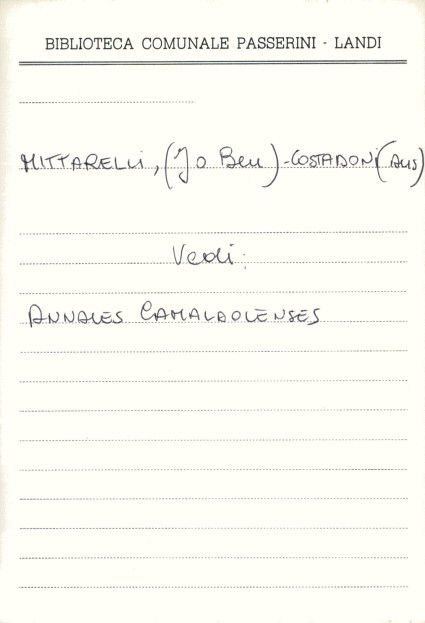 BIBLIOTECA COMUNALE PASSERINI - LANDI
MITTARELLI, (Jo Ben) - COSTADONI (Ans)
Vedi:
ANNALES CAMALDOLENSES